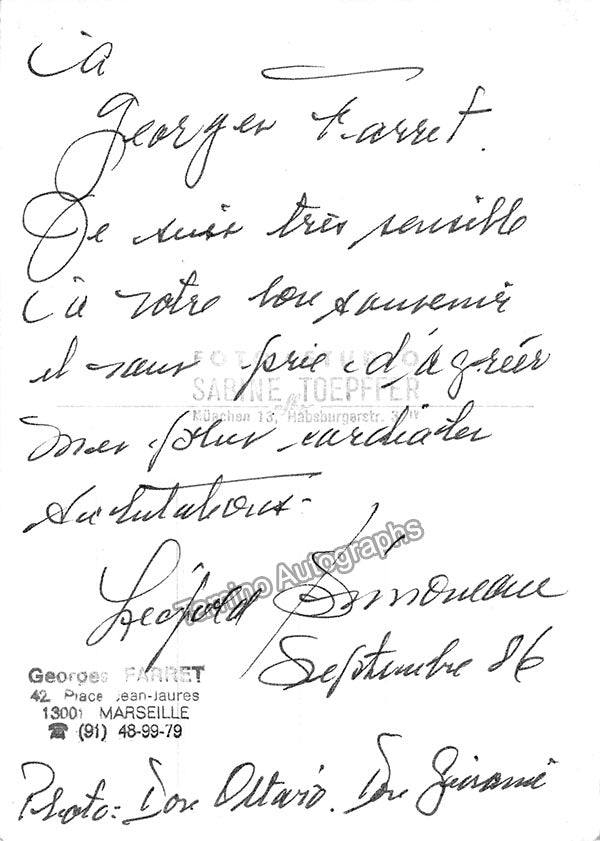 à
Georges Farret.
Je suis très sensible
à votre bon souvenir
et vous prie d'agréer
FOTO STUDIO
SABINE TOEPFFER
München 13, Habsburgerstr.
mes plus cordiales
salutations.
Tamino Autographs
Léopold Simoneau
Septembre 86
Georges FARRET
42, Place Jean-Jaures
13001 MARSEILLE
☎ (91) 48-99-79
Photo: Don Ottavio. Don Giovanni